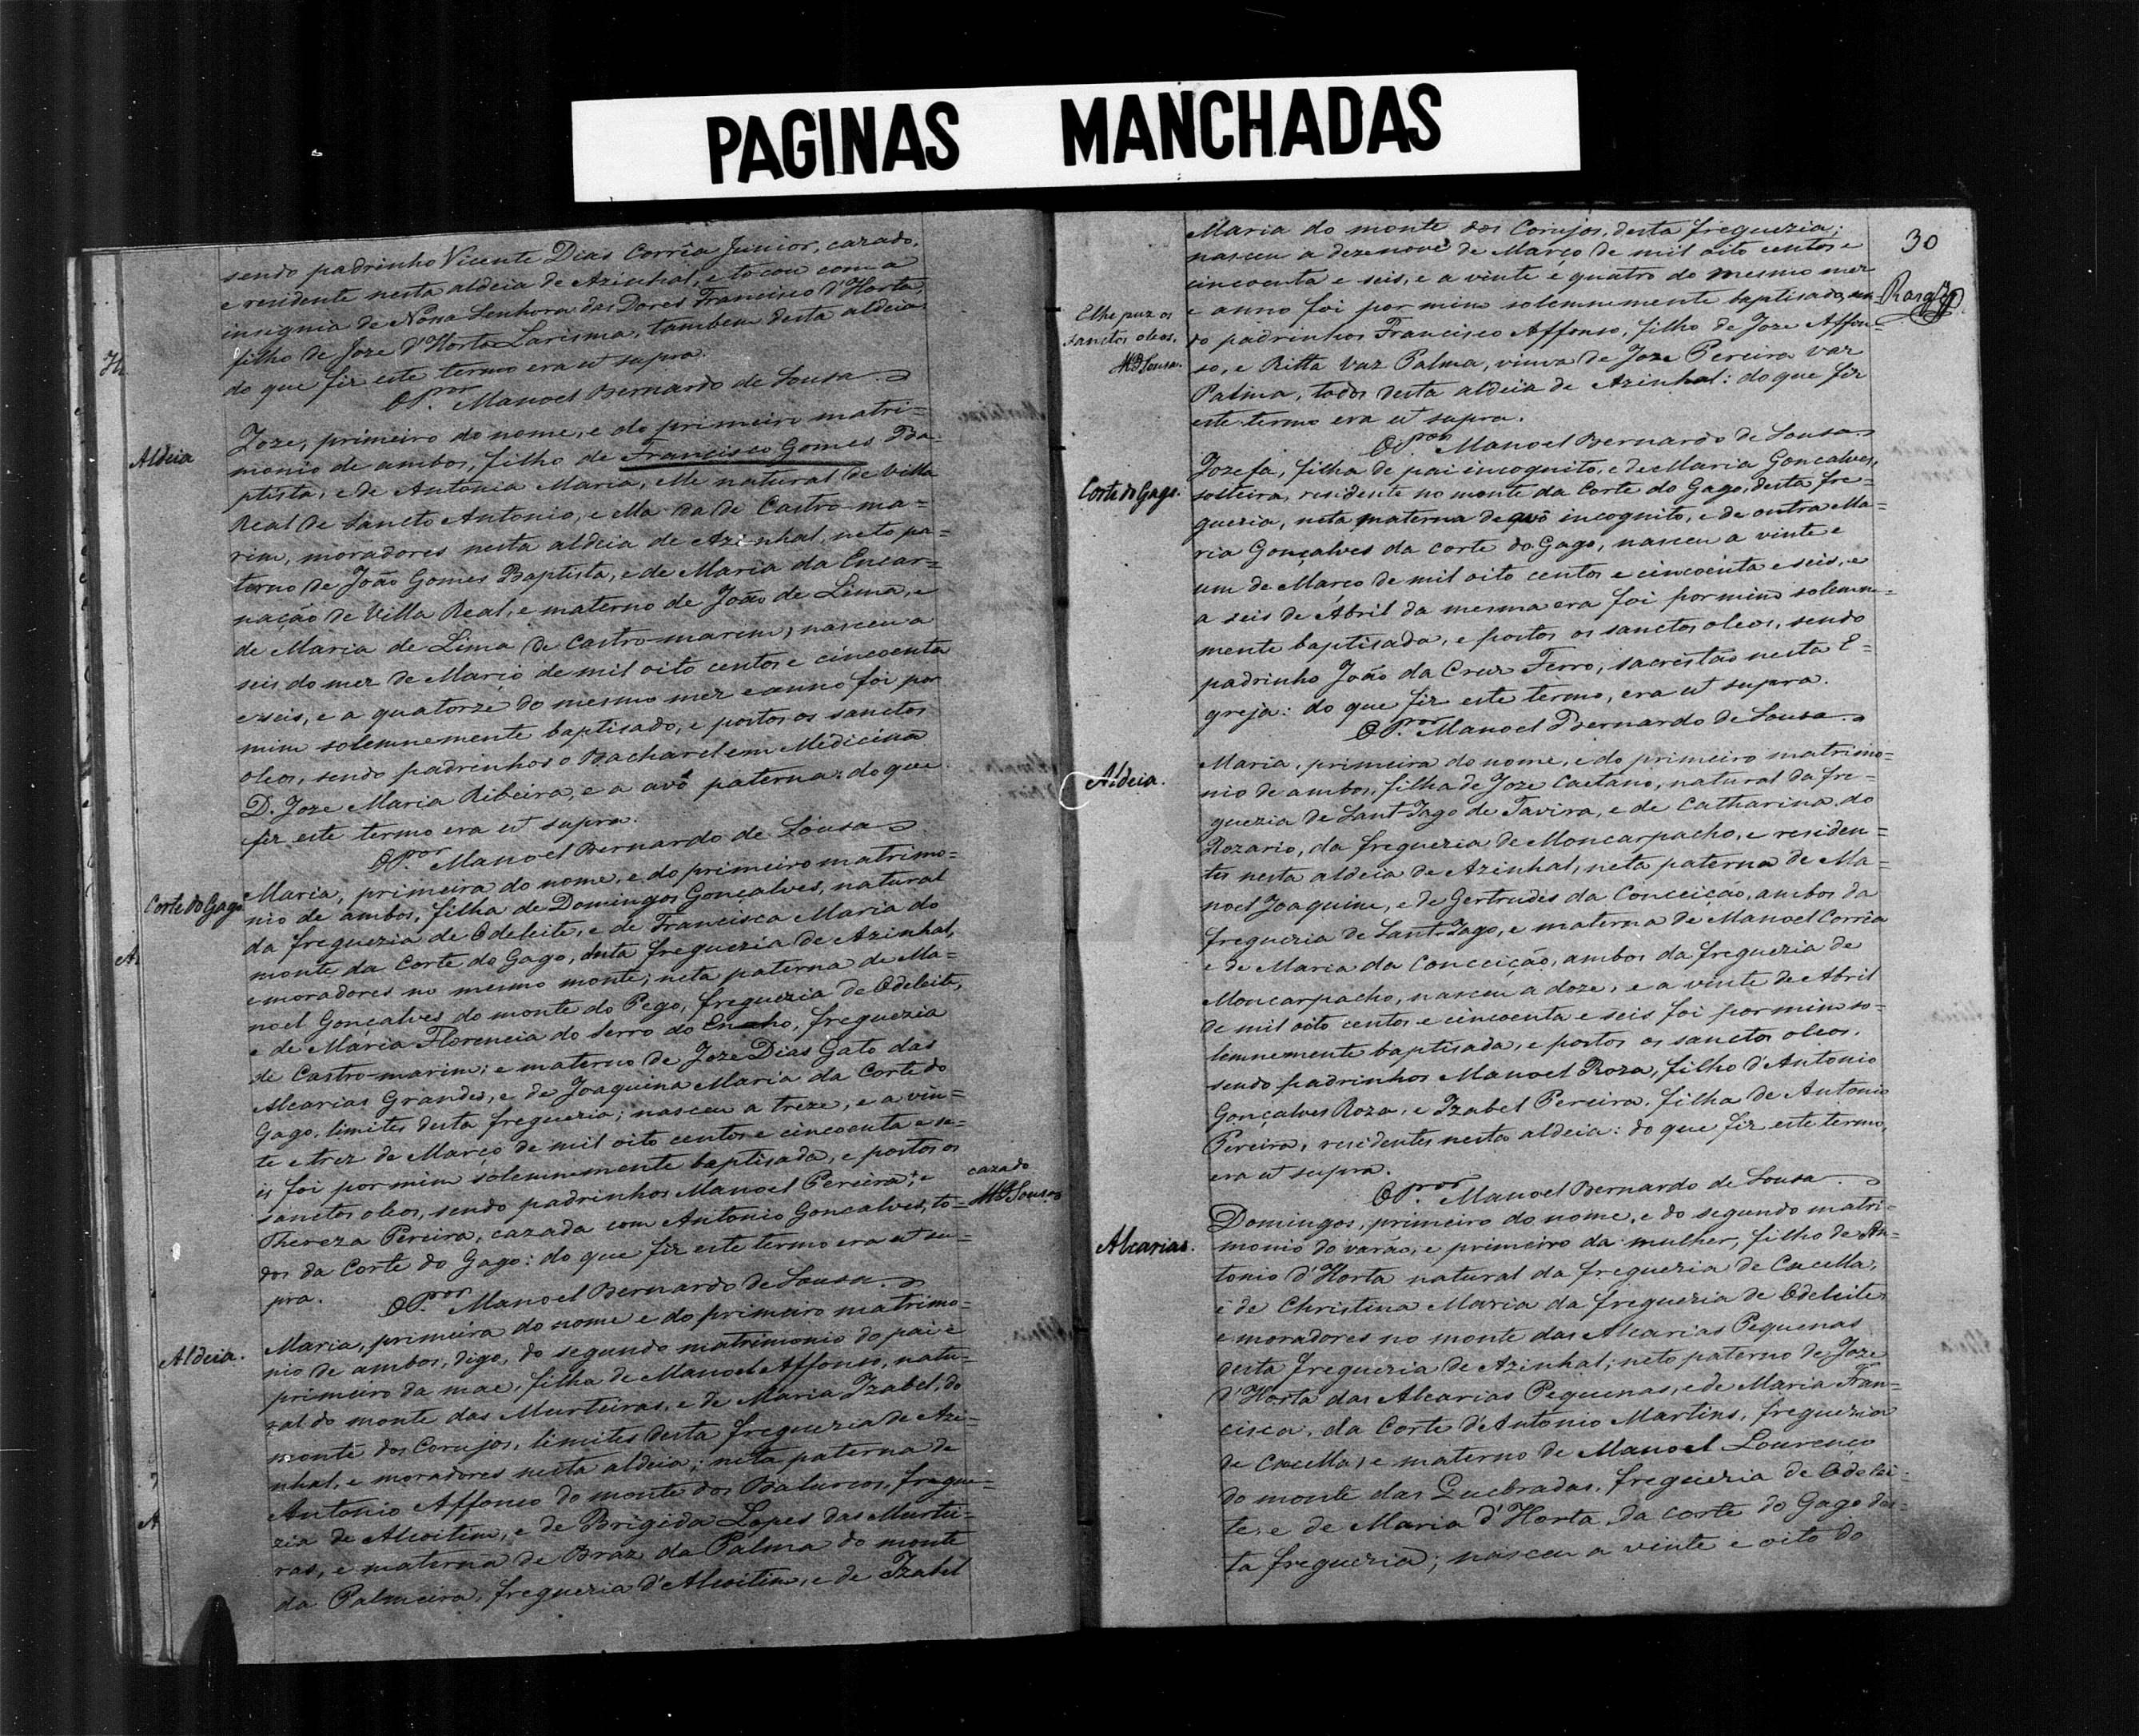 PAGINAS MANCHADAS
sendo padrinho Vicente Dias Corrêa Junior, cazado,
e residente nesta aldeia de Azinhal, e tocou com a
insignia de Nossa Senhora das Dores Francisco d'Horta,
filho de Joze d'Horta Larisma, tambem desta aldeia:
do que fiz este termo era ut supra.
O P.or Manoel Bernardo de Sousa
Aldeia
Joze, primeiro do nome, e do primeiro matri=
monio de ambos, filho de Francisco Gomes Ba=
ptista, e de Antonia Maria, elle natural de Villa
Real de Sancto Antonio, e ella da de Castro-ma=
rim, moradores nesta aldeia de Azinhal, neto pa=
terno de João Gomes Baptista, e de Maria da Encar=
nação de Villa Real, e materno de João de Lima, e
de Maria de Lima de Castro-marim, nasceu a
seis do mez de Março de mil oito centos e cincoenta
e seis, e a quatorze do mesmo mez e anno foi por
mim solemnemente baptisado, e postos os sanctos
oleos, sendo padrinhos o Bacharel em Medicina
D. Joze Maria Ribeira, e a avó paterna: do que
fiz este termo era ut supra.
O P.or Manoel Bernardo de Sousa
Corte do Gago
Maria, primeira do nome, e do primeiro matrimo=
nio de ambos, filha de Domingos Gonçalves, natural
da freguezia de Odeleite, e de Francisca Maria do
monte da Corte do Gago, desta freguezia de Azinhal,
e moradores no mesmo monte; neta paterna de Ma=
noel Gonçalves do monte do Pego, freguezia de Odeleite,
e de Maria Florencia do Serro do Enxo, freguezia
de Castro-marim; e materno de Joze Dias Gato das
Alcarias Grandes, e de Joaquina Maria da Corte do
Gago, limites desta freguezia; nasceu a treze, e a vin=
te e trez de Março de mil oito centos e cincoenta e se=
is foi por mim solemnemente baptisada, e postos os
sanctos oleos, sendo padrinhos Manoel Pereira, e
cazado
MBSousa
Thereza Pereira, cazada com Antonio Goncalves, to=
dos da Corte do Gago: do que fiz este termo era ut su=
pra.
O P.or Manoel Bernardo de Sousa
Aldeia.
Maria, primeira do nome e do primeiro matrimo=
nio de ambos, digo, do segundo matrimonio do pai e
primeiro da mae, filha de Manoel Affonso, natu=
ral do monte das Murteiras, e de Maria Izabel, do
monte dos Corujos, limites desta freguezia de Azi=
nhal, e moradores nesta aldeia; neta paterna de
Antonio Affonso do monte dos Balurcos, fregue=
zia de Alcoitim, e de Brigida Lopes das Murtei=
ras, e materna de Braz da Palma do monte
da Palmeira, freguezia d'Alcoitim, e de Izabel
30
Maria do monte dos Corujos, desta freguezia;
nasceu a dezenove de Março de mil oito centos e
cincoenta e seis, e a vinte e quatro do mesmo mez
e anno foi por mim solemnemente baptisada, sen=
E lhe puz os
sanctos oleos.
MBSousa.
do padrinhos Francisco Affonso, filho de Joze Affon=
so, e Ritta Vaz Palma, viuva de Joze Pereira Vaz
Palma, todos desta aldeia de Azinhal: do que fiz
este termo era ut supra.
O P.or Manoel Bernardo de Sousa
Corte do Gago.
Jozefa, filha de pai incognito, e de Maria Goncalves,
solteira, residente no monte da Corte do Gago, desta fre=
guezia, neta materna de avô incognito, e de outra Ma=
ria Gonçalves da corte do Gago, nasceu a vinte e
um de Março de mil oito centos e cincoenta e seis, e
a seis de Abril da mesma era foi por mim solemne=
mente baptisada, e postos os sanctos oleos, sendo
padrinho João da Cruz Ferro, sacristão nesta E=
greja: do que fiz este termo, era ut supra.
O P.or Manoel Bernardo de Sousa
Aldeia.
Maria, primeira do nome, e do primeiro matrimo=
nio de ambos, filha de Joze Caetano, natural da fre=
guezia de Sant-Iago de Tavira, e de Catharina do
Rozario, da freguezia de Moncarpacho, e residen=
tes nesta aldeia de Azinhal, neta paterna de Ma=
noel Joaquim, e de Gertrudes da Conceiçao, ambos da
freguezia de Sant-Iago, e materna de Manoel Corrêa
e de Maria da Conceição, ambos da freguezia de
Moncarpacho, nasceu a doze, e a vinte de Abril
de mil oito centos e cincoenta e seis foi por mim so=
lemnemente baptisada, e postos os sanctos oleos.
sendo padrinhos Manoel Roza, filho d'Antonio
Gonçalves Roza, e Izabel Pereira, filha de Antonio
Pereira, residentes nesta aldeia: do que fiz este termo,
era ut supra.
O P.or Manoel Bernardo de Sousa
Alcarias.
Domingos, primeiro do nome, e do segundo matri=
monio do varão, e primeiro da mulher, filho de An=
tonio d'Horta natural da freguezia de Cacella,
e de Christina Maria da freguezia de Odeleite,
e moradores no monte das Alcarias Pequenas
desta freguezia de Azinhal; neto paterno de Joze
d'Horta das Alcarias Pequenas, e de Maria Fran=
cisca, da Corte d'Antonio Martins, freguezia
de Cacella, e materno de Manoel Lourenço
do monte das Quebradas, freguezia de Odelei=
te, e de Maria d'Horta da corte do Gago des=
ta freguezia; nasceu a vinte e oito do